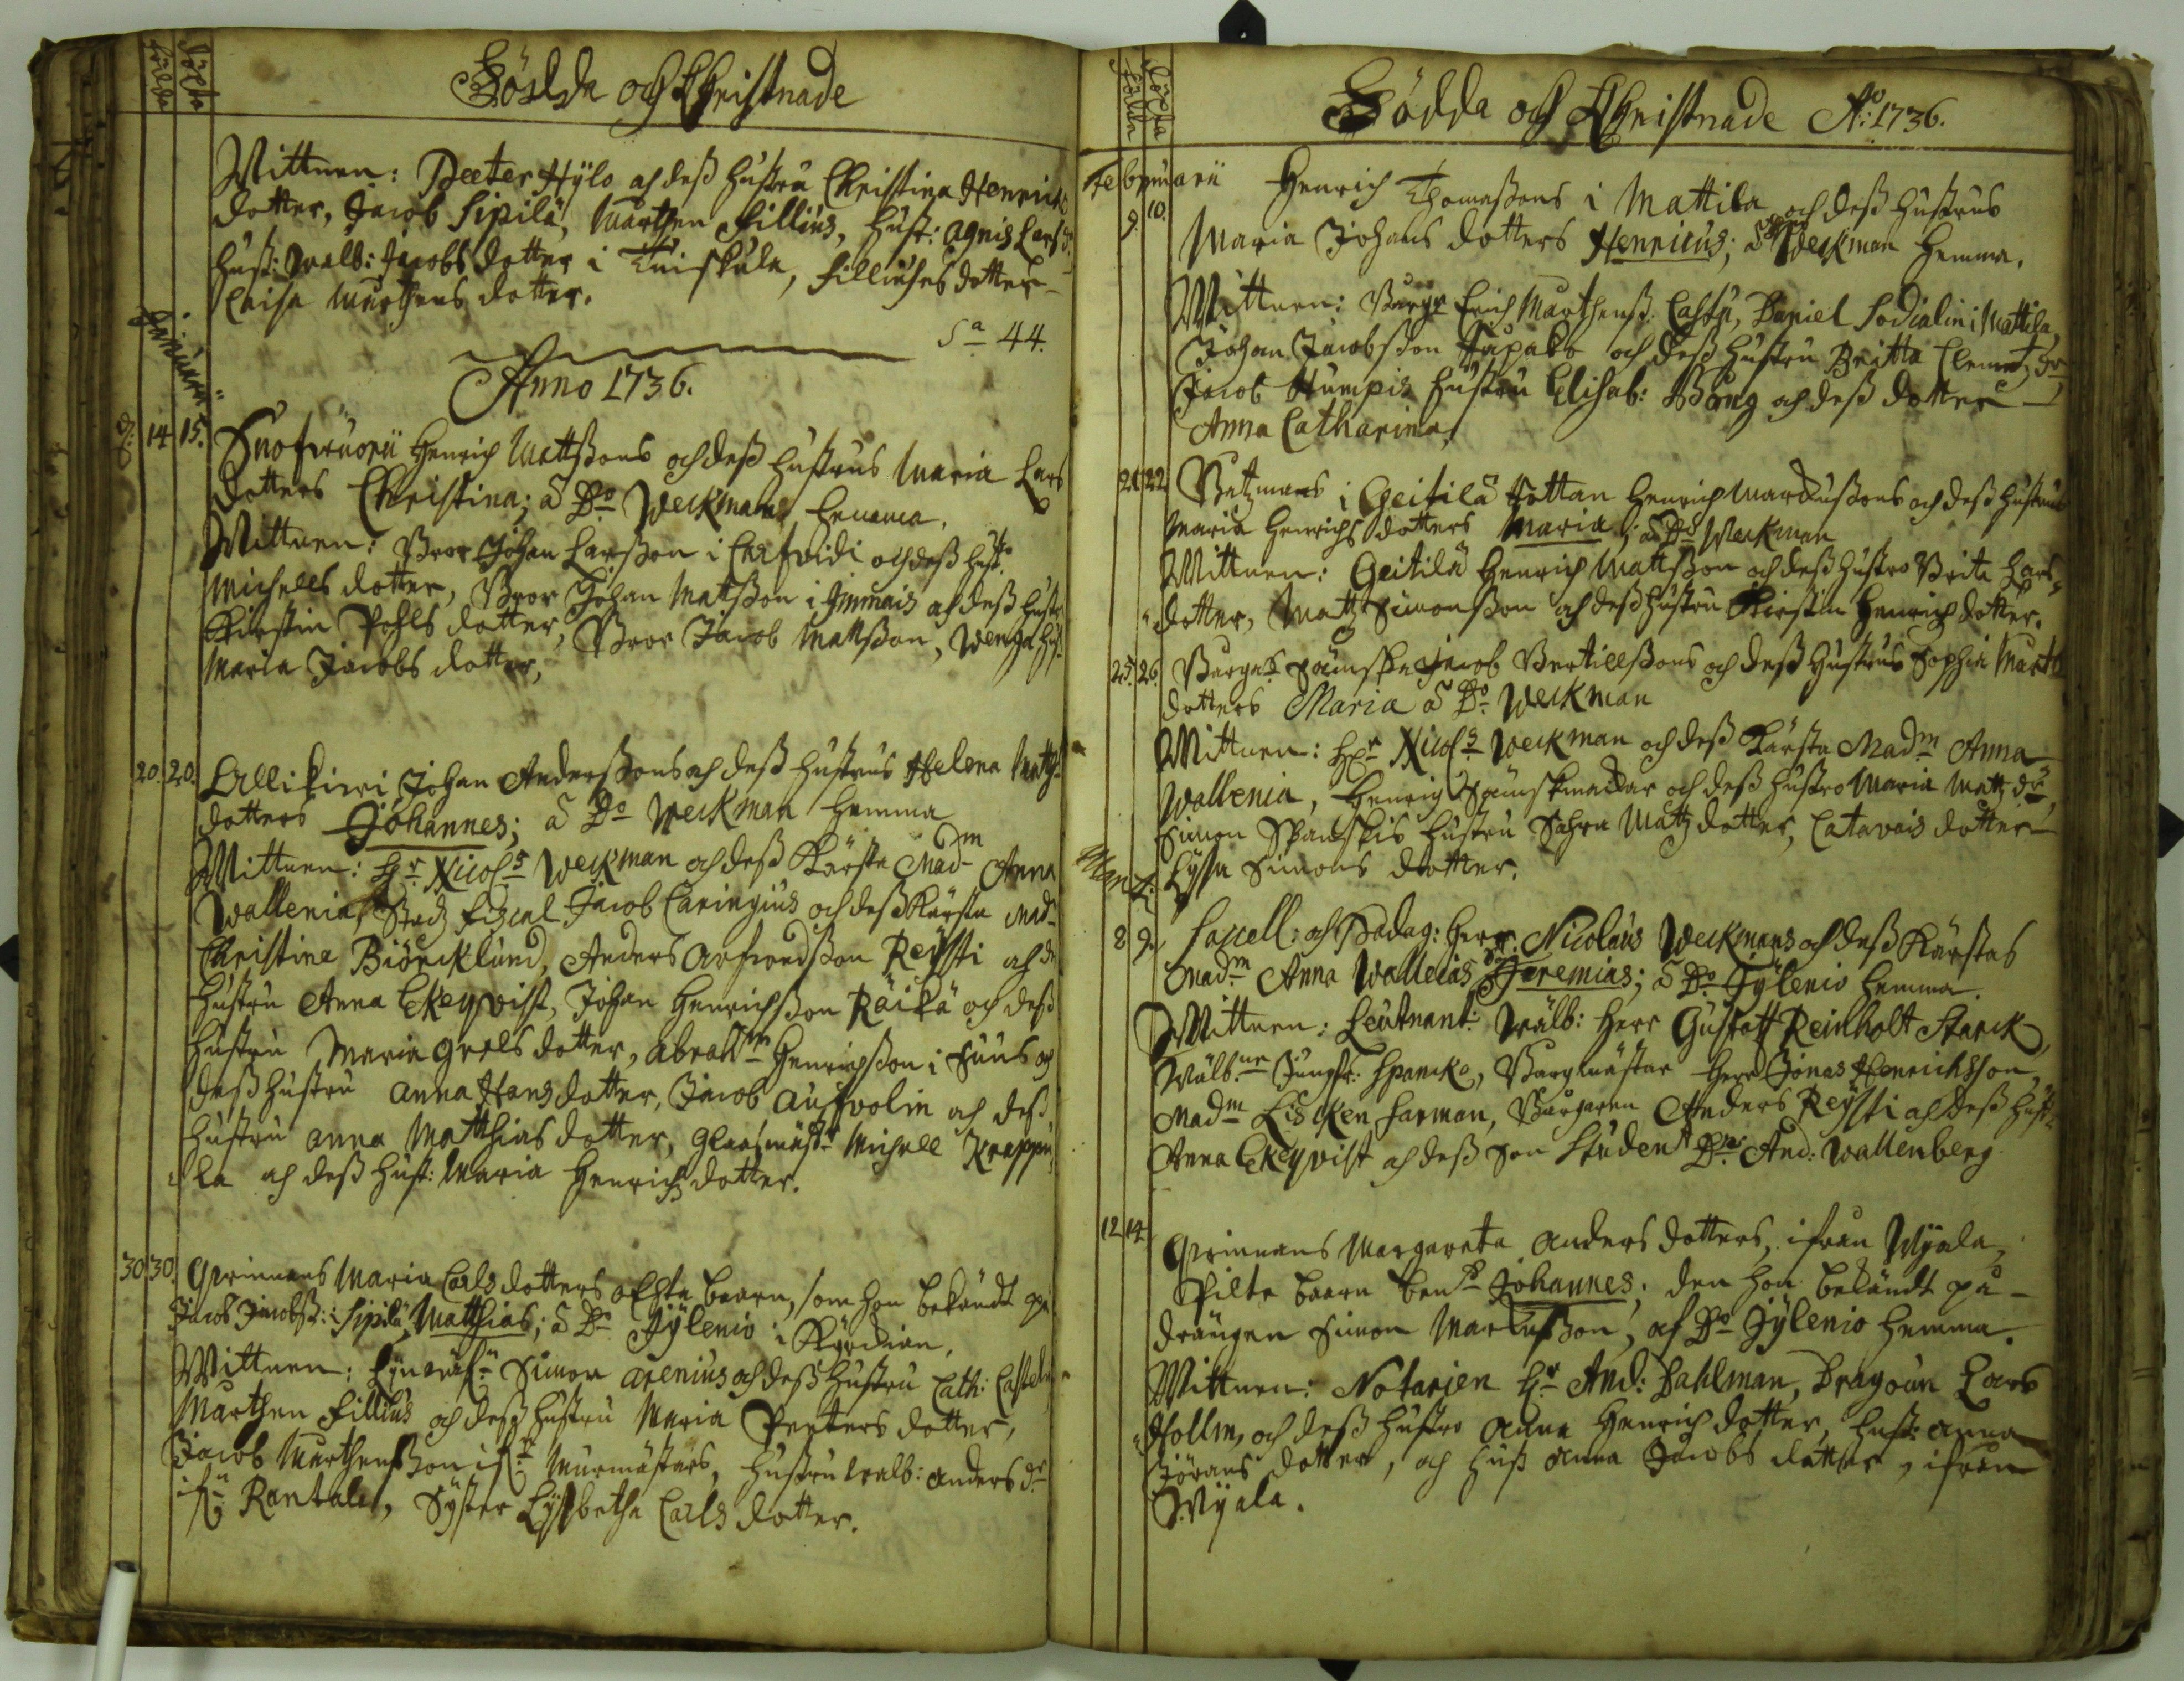 födde
döpte
Födda och Christnade
Wittnen: Peeter Hÿlo och deß hustru Christina Henrichs
dotter, Jacob Sipilä, Mårthen Fillius, Hust: Agnis Lars dr
hust: Walb: Jacobs dotter i Tuiskula, Filliuses dotter
Caisa Mårthens dotter.
Sa 44.
Anno 1736.
Januarii
14 15. Henrich Mattßons och deß hustrus Maria Lars
dotters Christina; â Do Weckman hemma.
Wittnen: Bror Johan Larßon i och deß hust:
Michells dotter, Bror Johan Matsßon i och deß hustru
Kirstin Pohls dotter, Bror Jacob Mattsßon, hust
Maria Jacobs dotter,
20. 20. Lallikiwi Johan Anderßons och deß hustrus Helena Matts
dotters Johannes; â Do Weckman hemma
Wittnen: Hr Nicols Weckman och deß Kärsta Madm Anna
Wallenia, Stadz Fiscal Jacob Caringius och deß Kärsta Mad
Christina Biörcklund, Anders Arfwedßon Reÿsti och deß
hustru Anna Ekeqvist, Johan Henrichßon Räikä och deß
hustru Maria Grels dotter, Abrahm Henrichßon i Suus och
deß hustru Anna Hans dotter, Jacob Aufwolin och deß
hustru Anna Matthias dotter, Glasmäst: Michell Krappu
la och deß hust: Maria Henrichs dotter.
30 30. Qwinnans Maria Carls dotters oächta baarn, som hon bekändt på
Jacob Jacobß: i Sipilä, Matthias; â Do Jÿlenio i Kÿrckian.
Wittnen: Simon Arenius och deß hustru Cath: Castelia
Mårthen Fillius och deß hustru Maria Peeters dotter,
Jacob Mårthenßon ifr: Murmästars, hustru Walb: Anders dr
ifr: Rantala, Sÿster Lÿsbetha Carls dotter.
födde
döpta
Födda och Christnade Ao: 1736.
Februarii
9. 10. Henrich Thomaßons i Mattila och deß hustrus
Maria Johans dotters Henricus; â Do Weckman hemma.
Wittnen: Borgr Erich Mårthenß: Castu, Daniel Sodialin i Mattila,
Johan Jacobsßon Papako och deß hustru Britta Clemetz dr
Jacob Stumpis hustru Elisab: Bång och deß dotter
Anna Catharina,
21 22. Båtzmans i Geitilä Hottan Henrich Markußons och deß hustrus
Maria Henrichs dotters Maria; â Do Weckman
Wittnen: Geitilä Henrich Mattsßon och deß hustro Brita Lars
dotter, Matz Simonsßon och deß hustru Kirstin Henrichs dotter.
25. 26. Borgars Jacob Bertillßons och deß hustrus Sophia Mårth
dotters Maria â Do Weckman
Wittnen: Hr Nicols Weckman och deß Kärsta Madm Anna
Wallenia, Henrich Sämskmakar och deß hustro Maria Matz dr,
Simon Spanskis hustru Sahra Matz dotter, Catavais dotter
Lÿsa Simons dotter.
Mart.
8 9. Sacell: och Pædag: Herr Nicolaus Weckmans och deß Kärstas
Madm Anna Wallenias Jeremias; â Do Jÿlenio hemma.
Wittnen: Leutnant: Wälb: Herr Gustaff Reinholt Starck,
Wälb:ne Jungfr: Spåncke, Borgmästar Herr Jonas Henrichsson,
Madm Liscken Farman, Borgaren Anders Reÿsti och deß hust
Anna Ekeqvist och deß son Student Dn And: Wallenberg
12 14. Qwinnans Margareta Anders dotters, ifrån Wÿala,
Pilte baarn ben:d Johannes; den hon bekändt på
drängen Simon Markußon, af Do Jÿlenio hemma.
Wittnen: Notarien Hr And: Dahlman, Dragoun Lars
Hollm, och deß hustro Anna Henrichs dotter, hust: Anna
Jörans dotter, och hust Anna Jacobs dotter, ifrån
Wÿala.